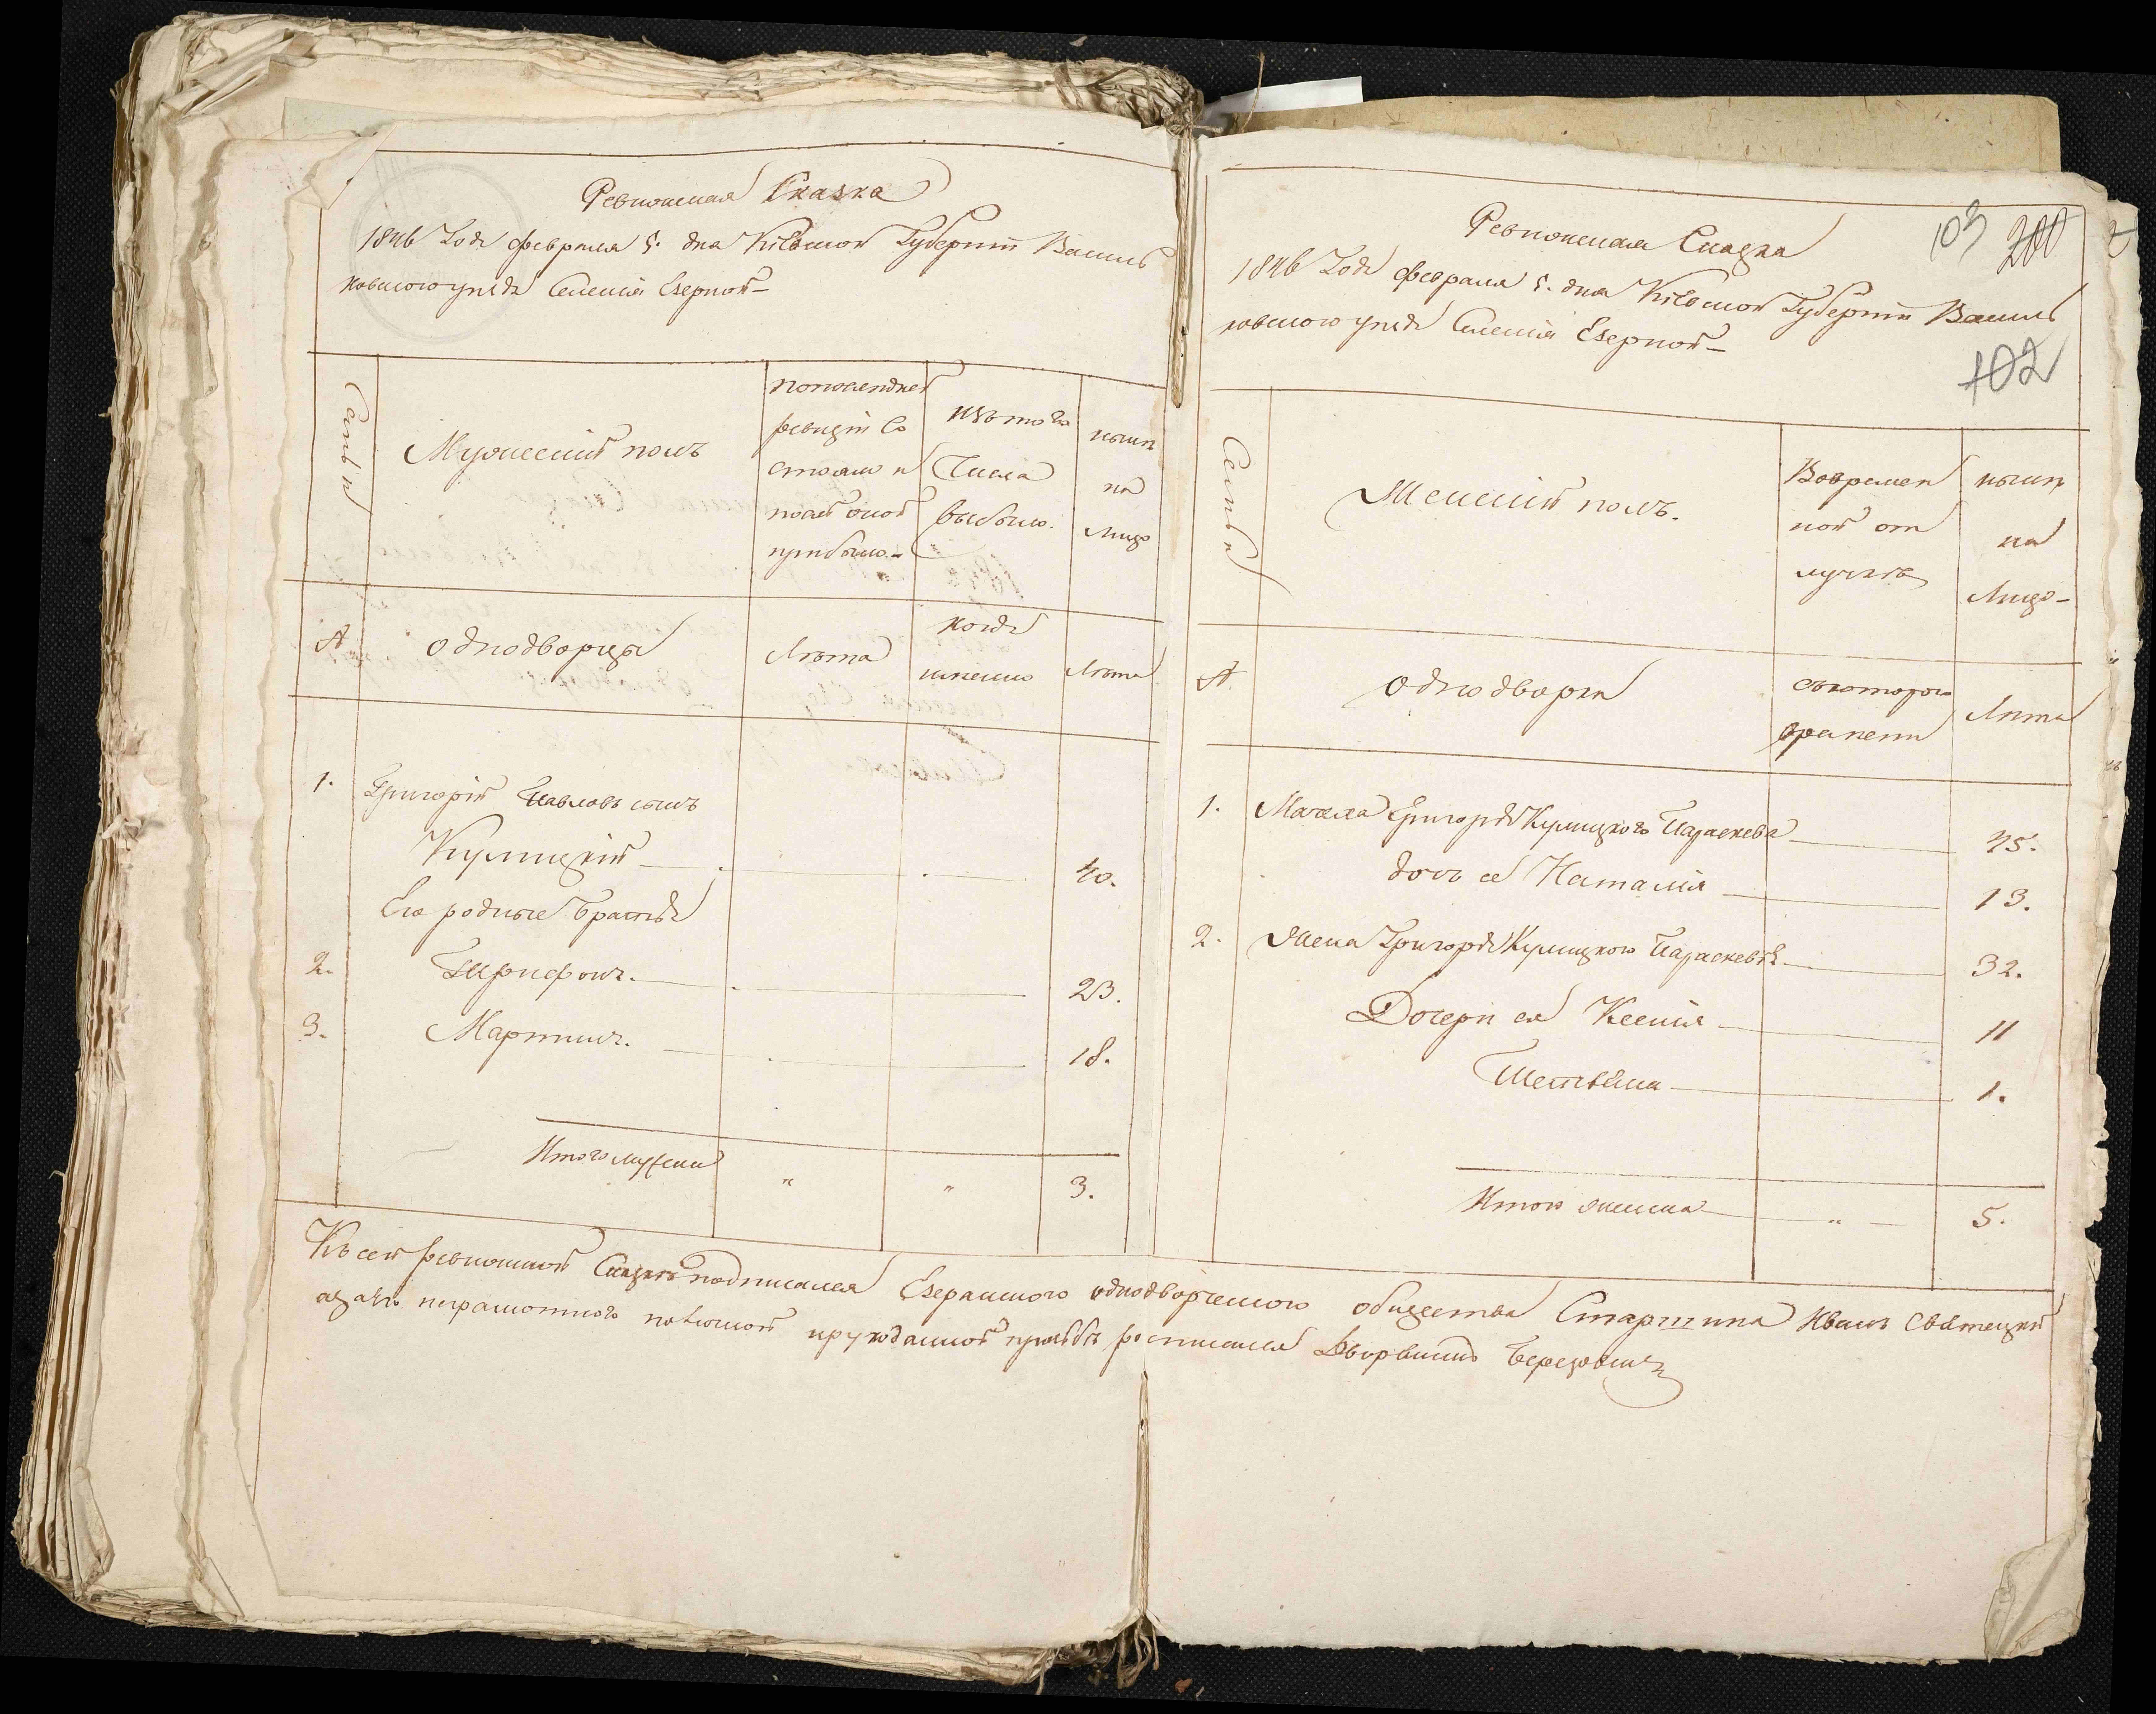 Ревизская Сказка
1846 Года февраля 5. дня Кіевской Губерніи Василь
ковского уезда Селенія Езерной
Семьи
Мужескій полъ
попоследней
ревизіи со
стояло и
после оной
прибыло
изъ того
Числа
выбыло.
ныне
на
лицо
А
однодворцы
Лета
когда
именно
Лета
1. Григорій Павловъ сынъ
Кулицкій 40.
Его родные братья
2. Трифонъ. 23.
3. Мартинъ. 18.
Итого мужска " " 3.
Ревизская Сказка
103 200
1846 Года февраля 5. дня Кіевской Губерніи Василь
ковского уезда Селенія Езерной
102
Семьи
Женскій полъ.
Вовремен
ной от
лучке
ныне
на
Лицо
А
однодворки
съкоторого
времени
Лета
1. Мачеха Григорія Кулицкого Параскева 45.
дочь ее Наталія 13.
2. Жена Григорія Кулицкого Параскевія 32.
Дочери ея Ксенія 11
1.
Итого женска " 5.
Къ сей ревизской Сказке подписался Езеранского однодворческого общества Старшина Иванъ Святецкій
азанего неграмотного поличной ирукоданной прозьбе росписался Дворянинъ Березовскі